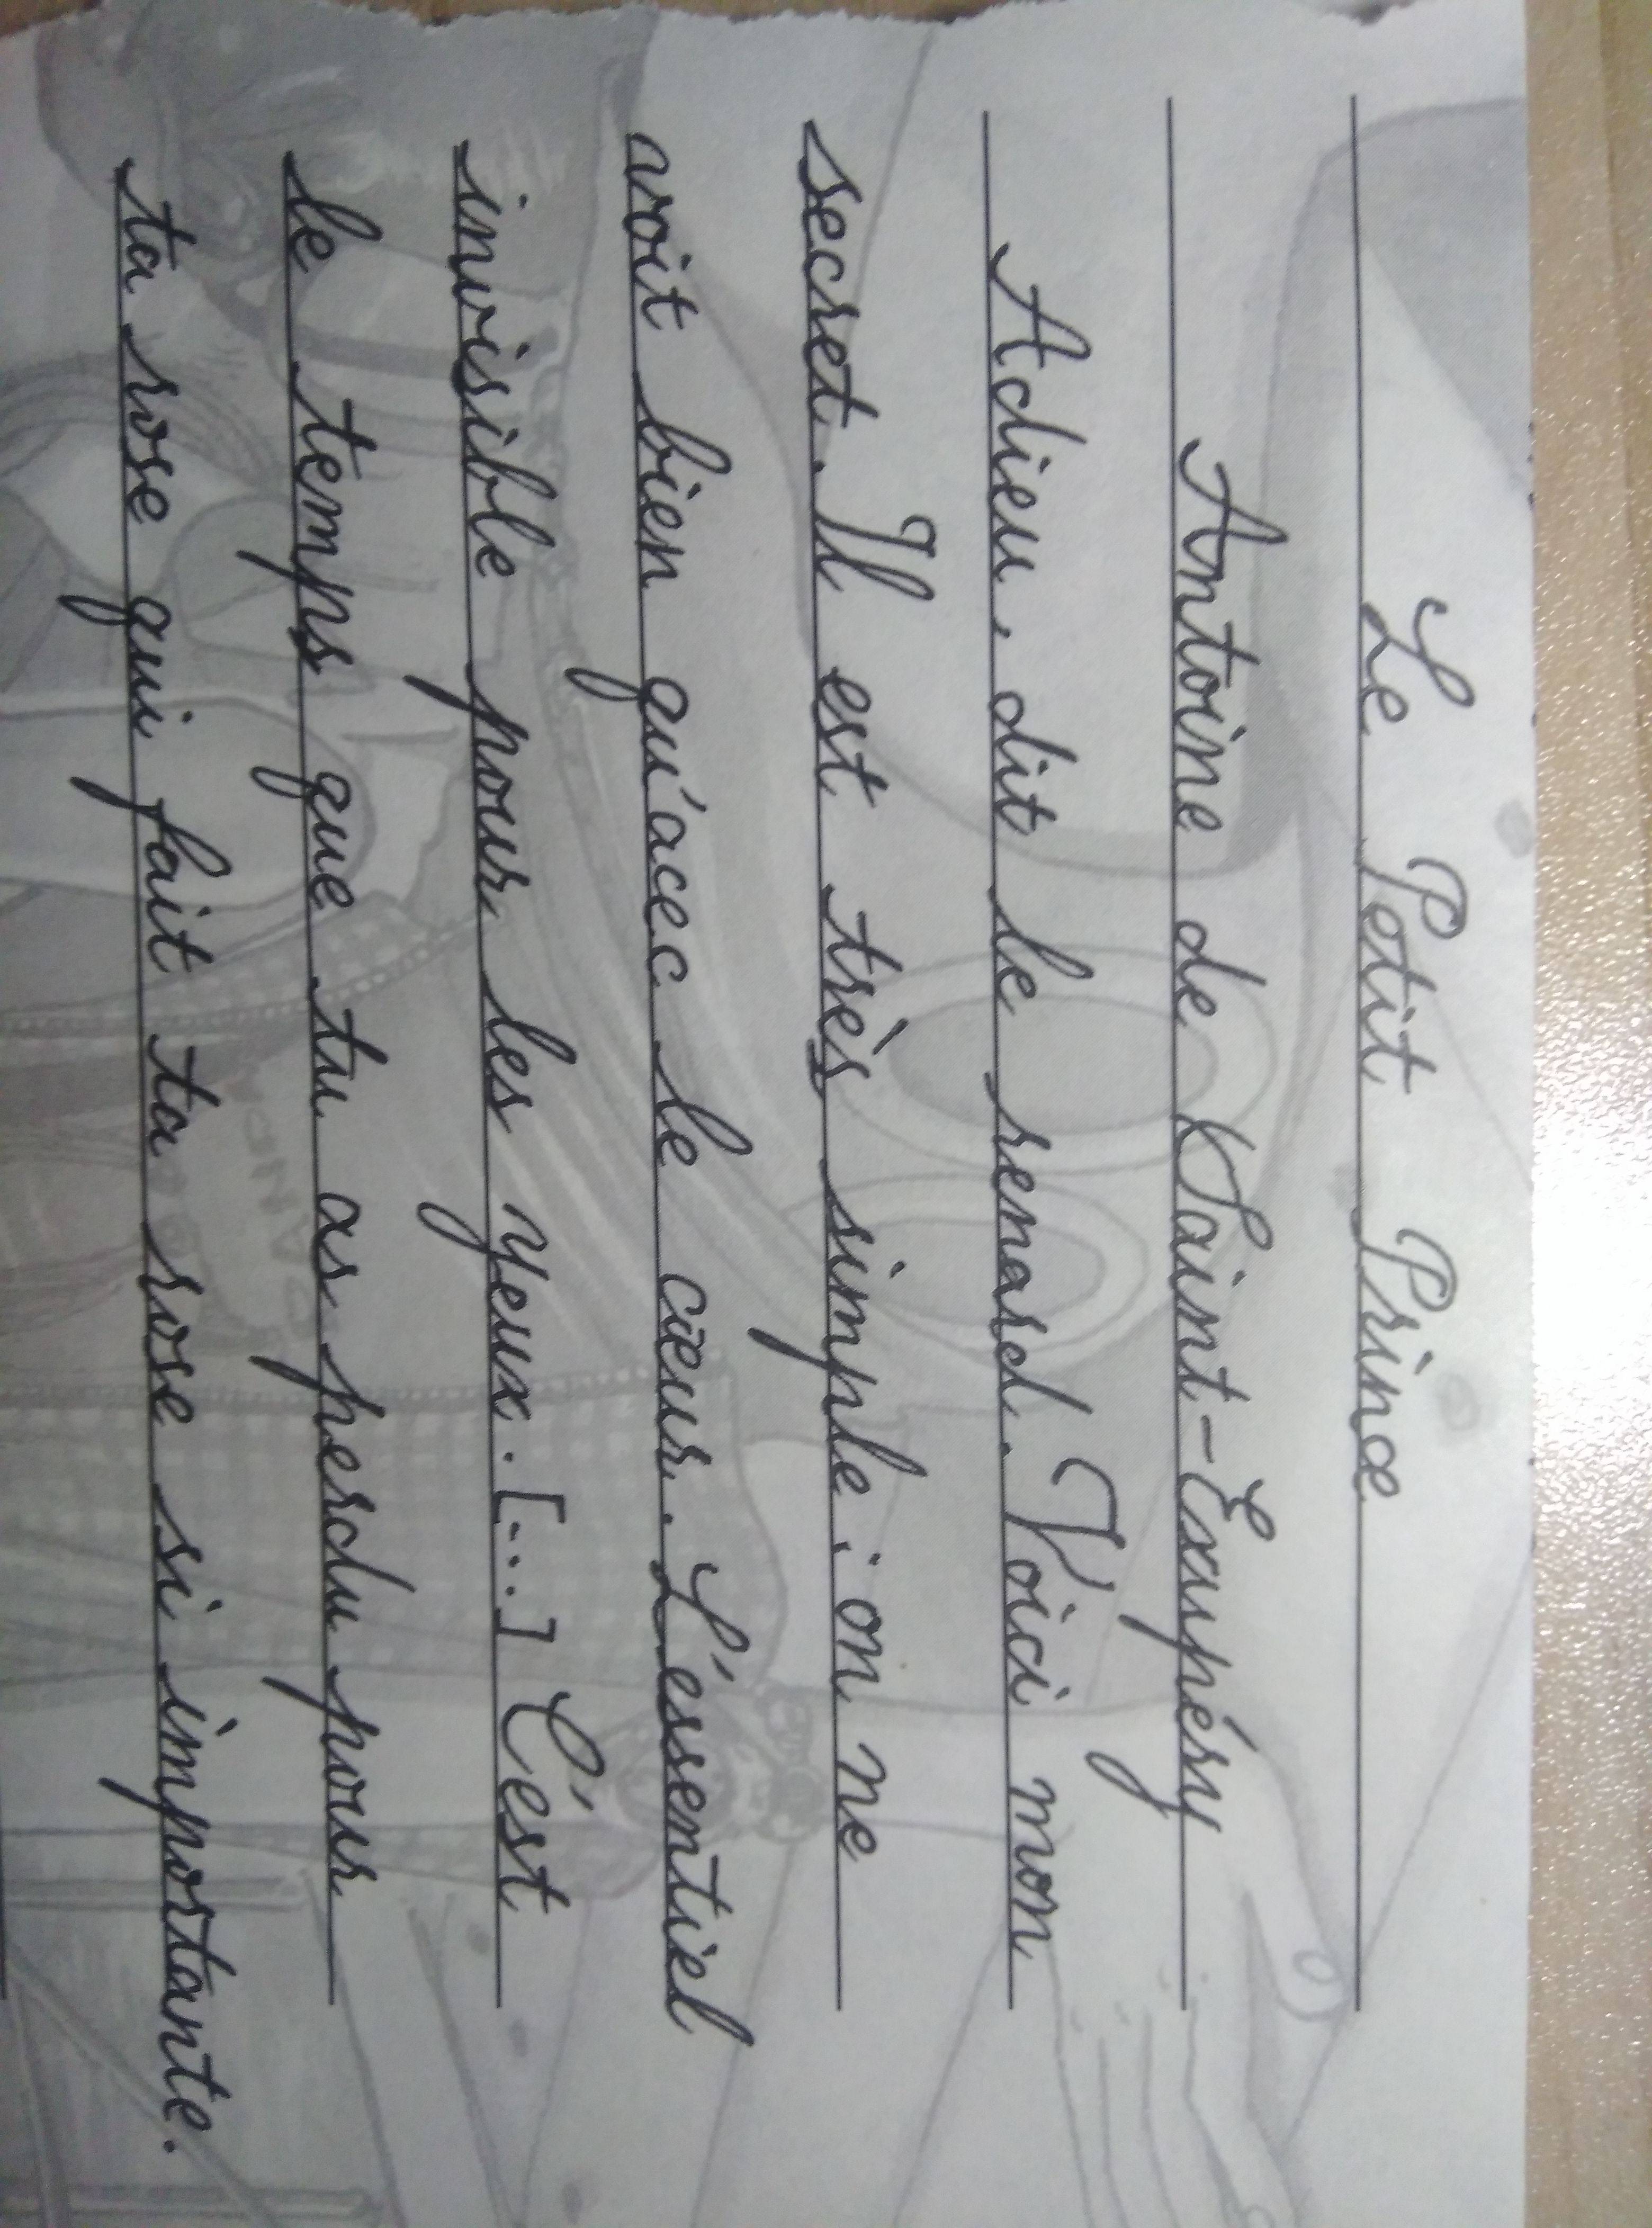 Le Petit Prince
Antoine de Saint-Exupéry
Adieu, dit le renard. Voici mon
secret. Il est très simple : on ne
voit bien qu'acec le cœur. L'essentiel
invisible pour les yeux. [...] C'est
le temps que tu as perdu pour
ta rose qui fait ta rose si importante.